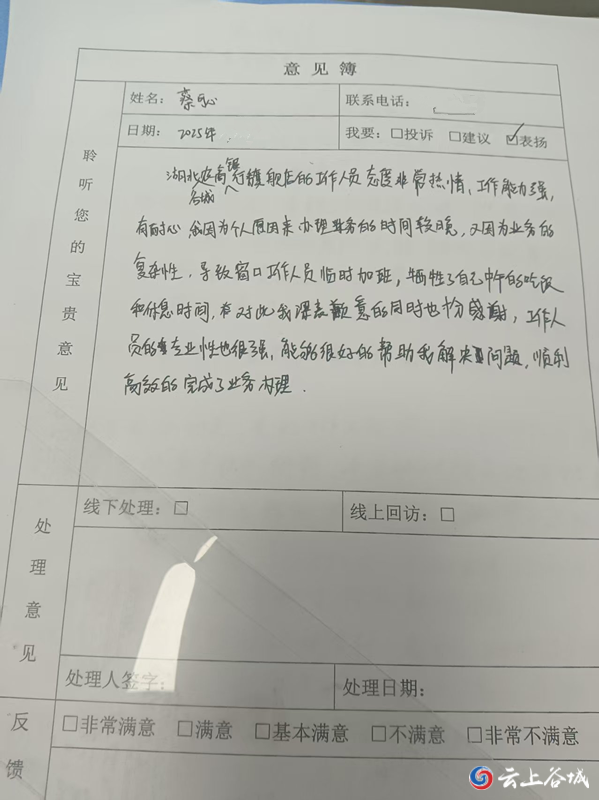 意见簿
聆听您的宝贵意见
姓名：蔡
联系电话：
日期：2025年
我要：☐投诉 ☐建议 ☑表扬
湖北谷城旗舰店的工作人员态度非常热情，工作能力强，
有耐心，我因为个人原因来办理业务的时间较晚，又因为业务的
复杂性，导致窗口工作人员临时加班，牺牲了自己中午的吃饭
和休息时间，对此我深表歉意的同时也十分感谢，工作人
员的专业性也很强，能够很好的帮助我解决问题，顺利
高效的完成了业务办理．
处理意见
线下处理：☐
线上回访：☐
处理人签字：
处理日期：
反馈
☐非常满意 ☐满意 ☐基本满意 ☐不满意 ☐非常不满意
云上谷城